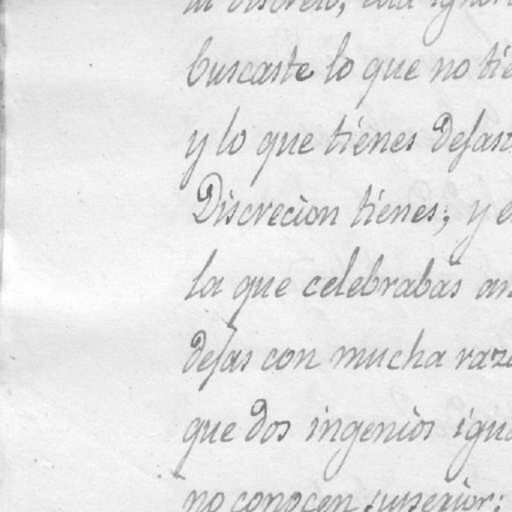 buscaste lo que no tie
y lo que tienes dejast
Discrecion tienes; y e
la que celebrabas an
dejas con mucha raz
que dos ingenios igua
no conocen superior: